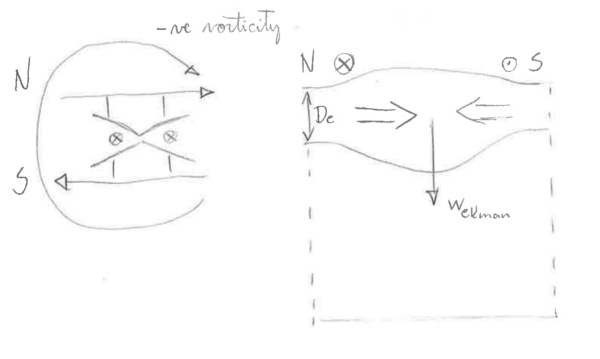 -ve vorticity
N
S
N
S
De
Wekman